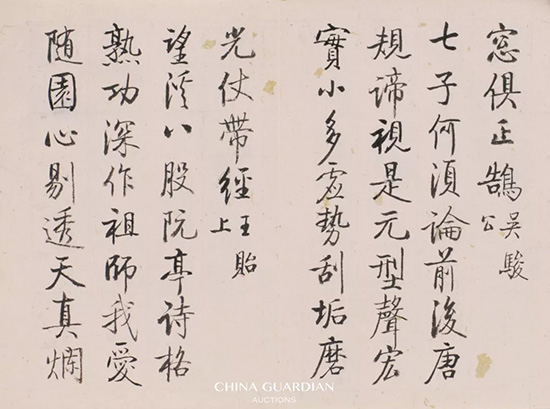 窓俱正鵠 吳駿公
七子何須論前後唐
規諦視是元型聲宏
實小多虛勢刮垢磨
光仗帶經 王貽上
望溪八股阮亭詩格
熟功深作祖師我愛
随園心剔透天真爛
CHINA GUARDIAN
AUCTIONS